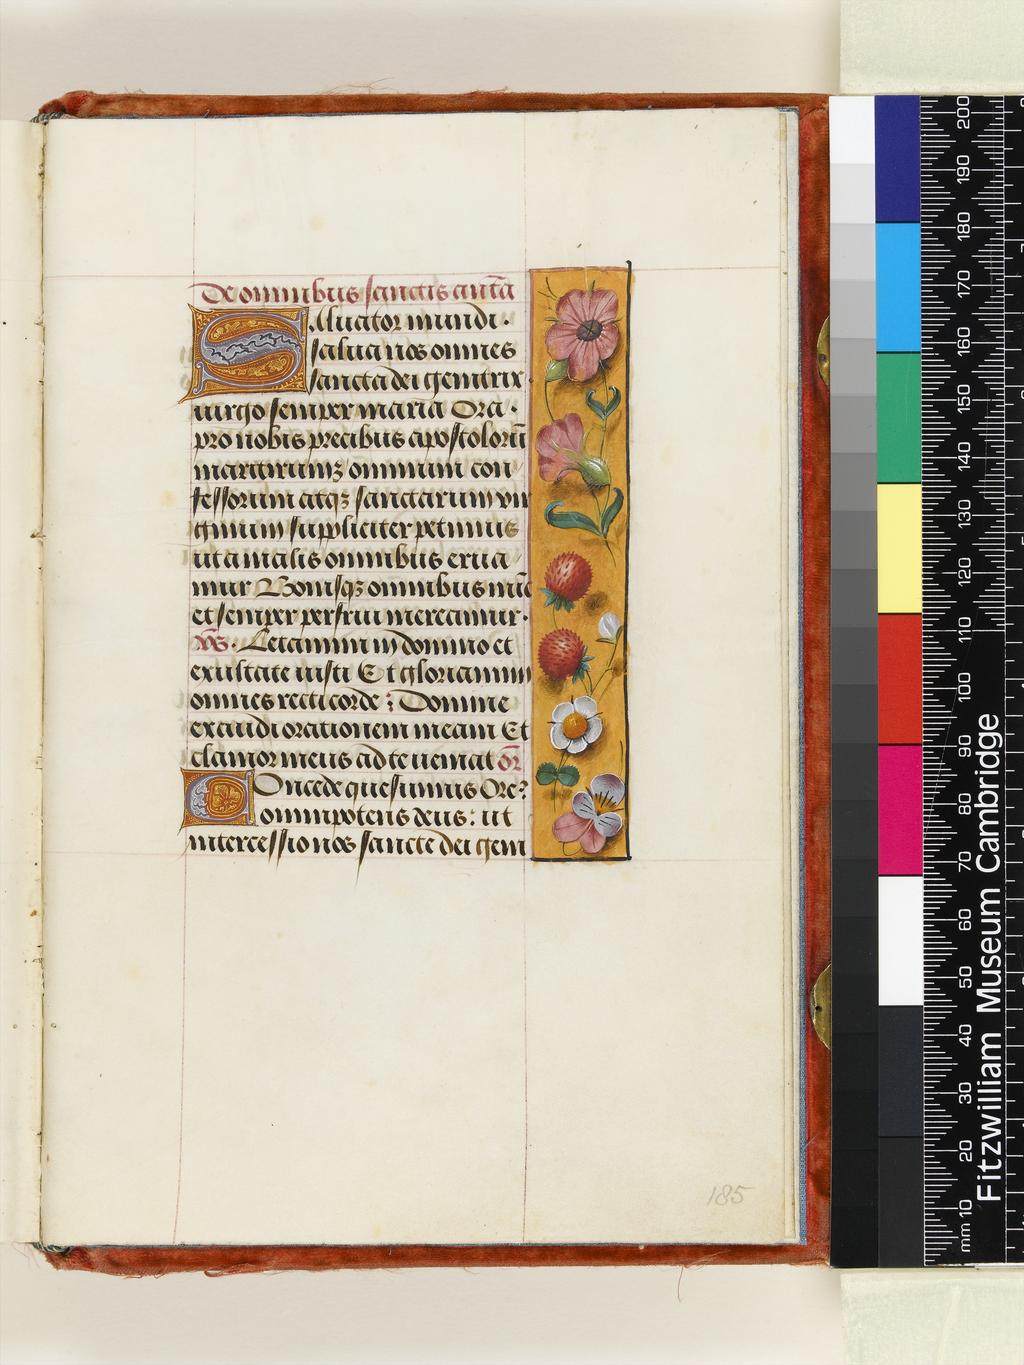 De omnibus sanctis antā
Saluator mundi·
salua nos omnes
sancta dei genitrix
uirgo semper maria Ora·
pro nobis precibus apostolorū
martirumqꝫ omnium con
fessorum atqꝫ sanctarum vir
ginum suppliciter petimus
ut a malis omnibus erua
mur Bonisqꝫ omnibus nūc
et semper perfrui mereamur·
Vs̄· Letamini in domino et
exultate iusti Et gloriamini
omnes recti corde: Domine
exaudi orationem meam Et
clamor meus ad te ueniat Or̄
Concede quesumus Oĩps
omnipotens deus: ut
intercessio nos sancte dei geni
185
Fitzwilliam Museum Cambridge
mm 10 20 30 40 50 60 70 80 90 100 110 120 130 140 150 160 170 180 190 200